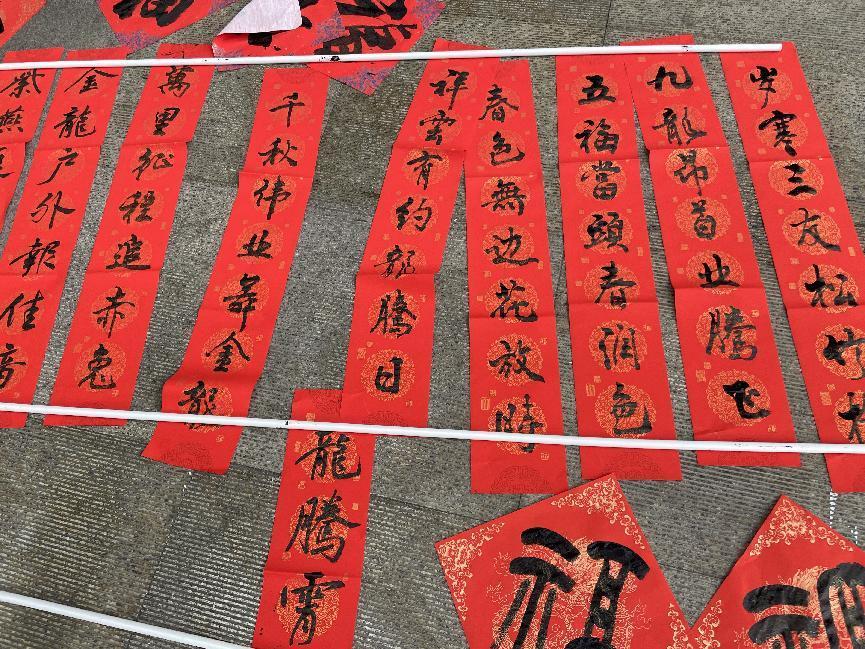 岁寒三友松竹
九龍昂首业騰飞
五福當頭春润色
春色無边花放時
祥雲有约龍騰日
千秋伟业舞金龍
萬里征程追赤兔
金龍户外報佳音
紫燕
龍騰霄